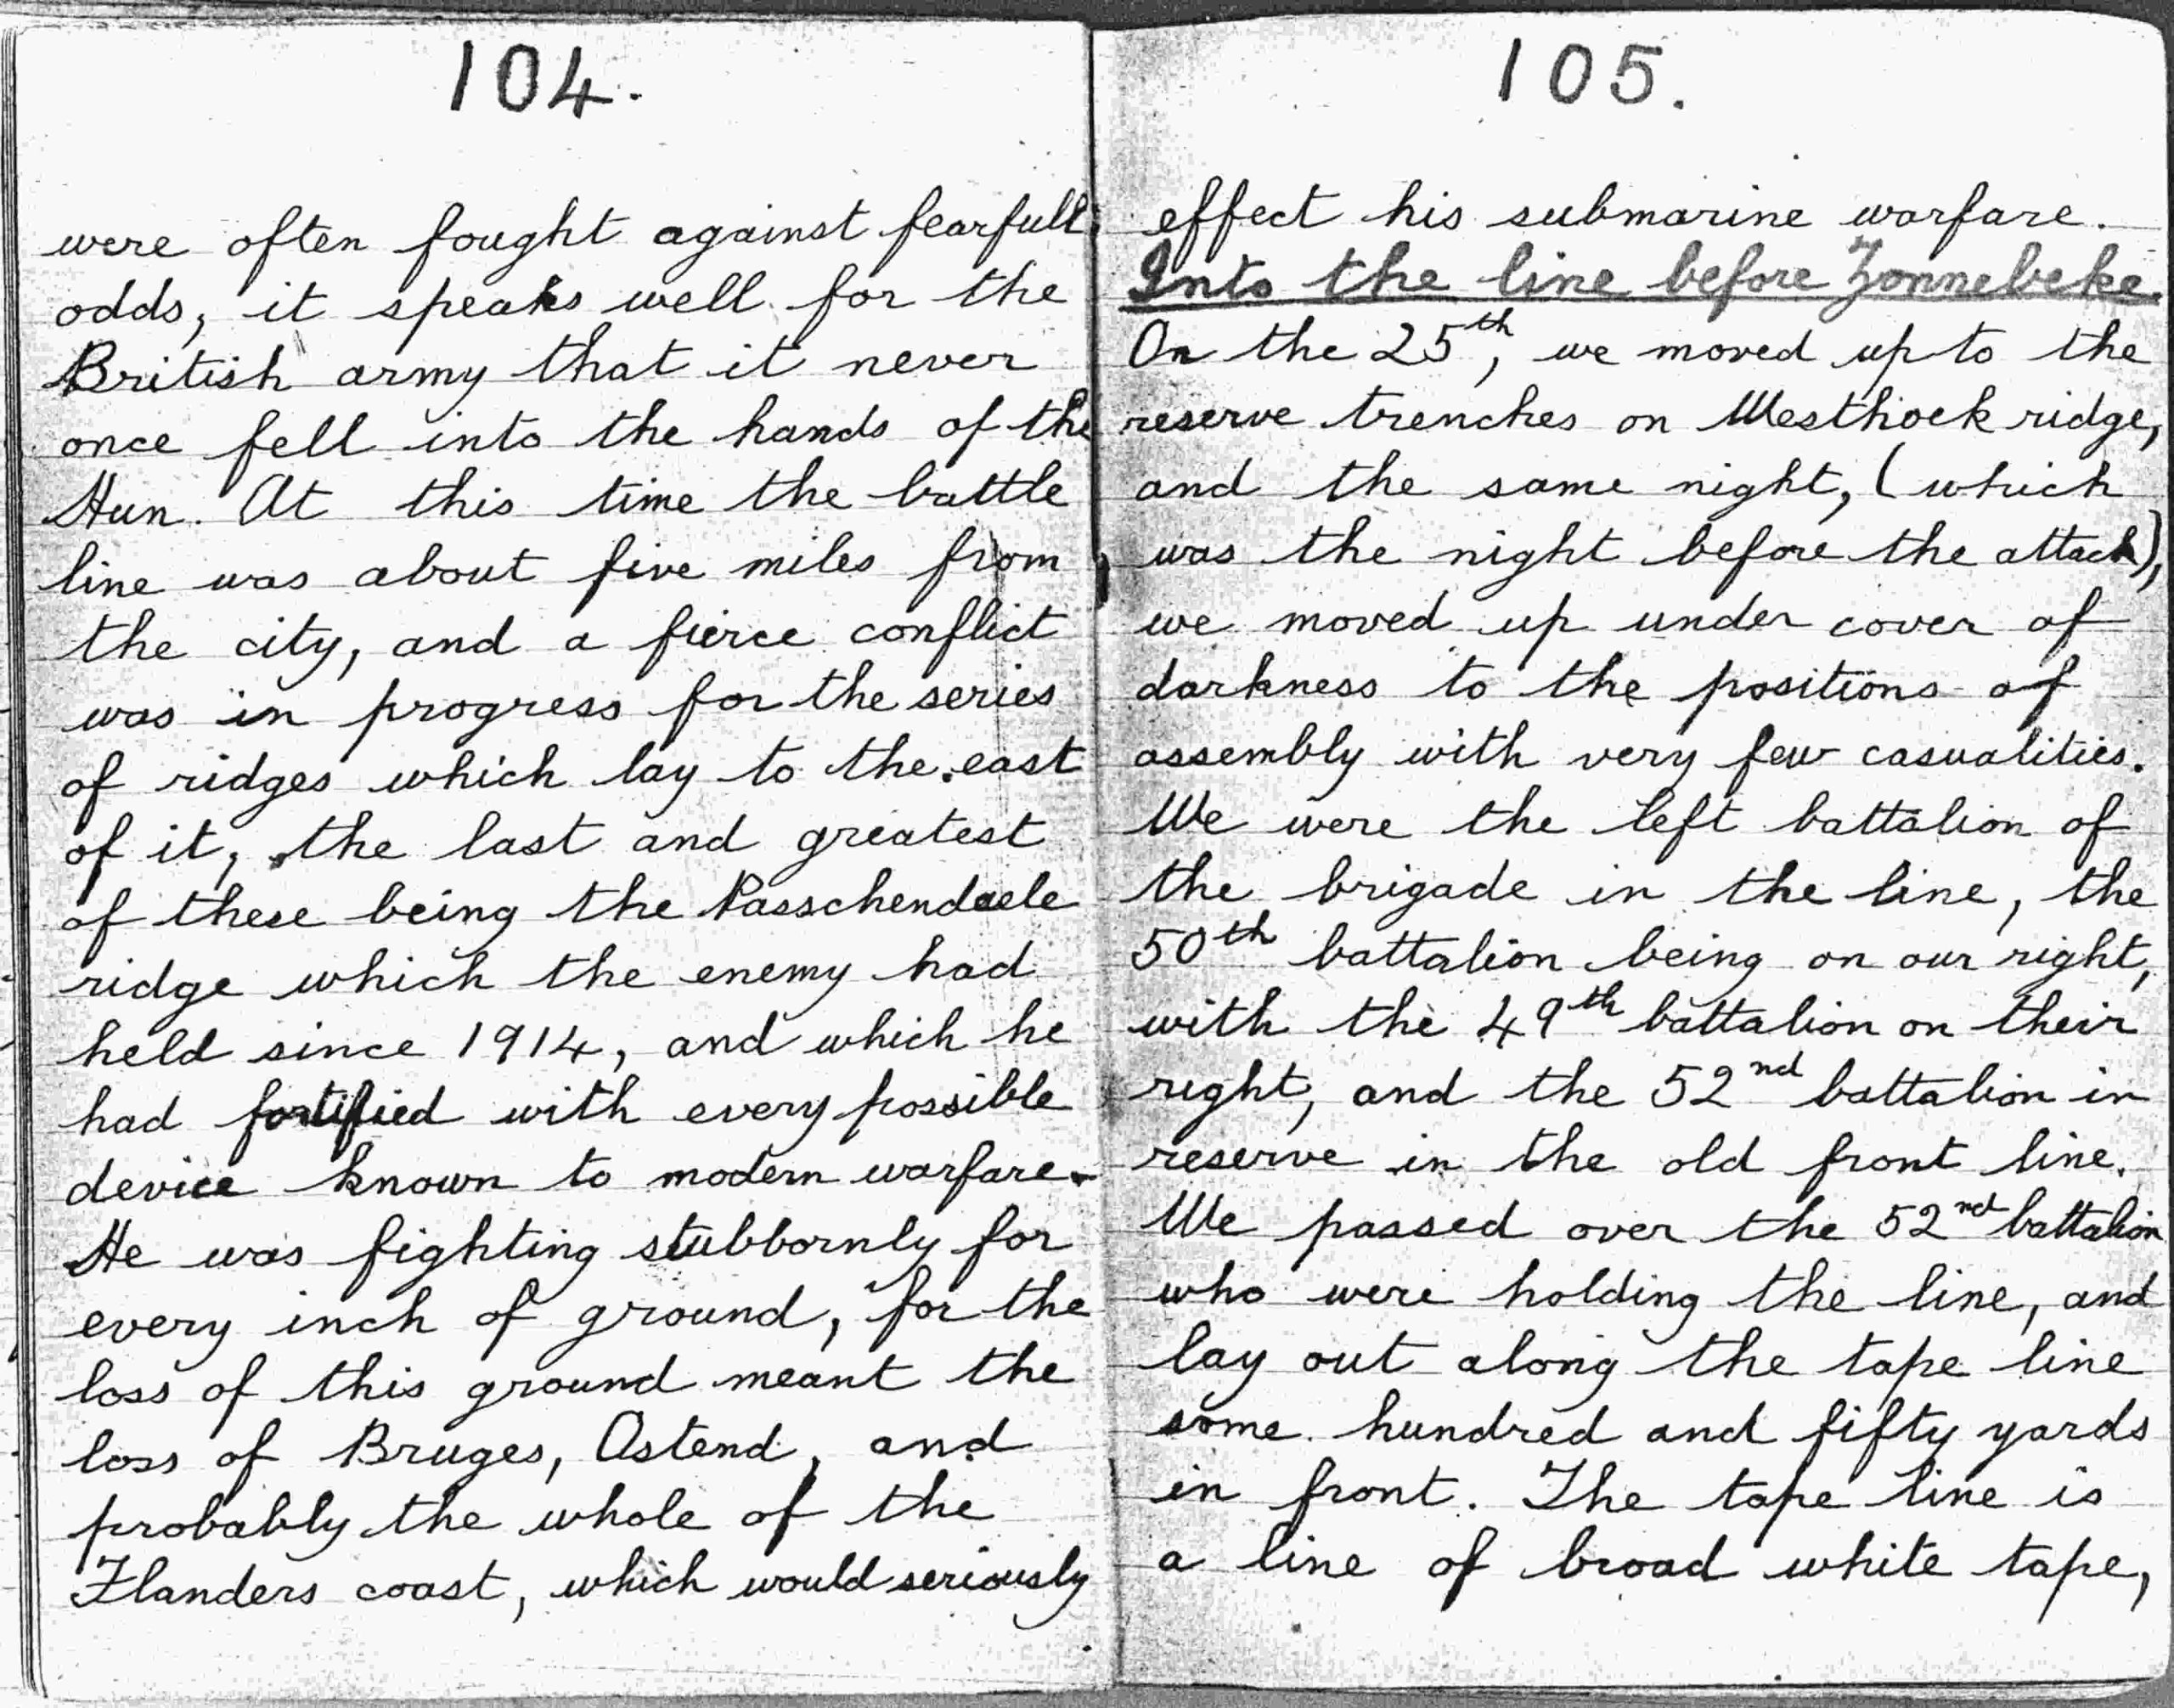 104.
were often fought against fearfull
odds, it speaks well for the
British army that it never
once fell into the hands of the
Hun. At this time the battle
line was about five miles from
the city, and a fierce conflict
was in progress for the series
of ridges which lay to the east
of it, the last and greatest
of these being the Passchendaele
ridge which the enemy had
held since 1914, and which he
had fortified with every possible
device known to modern warfare.
He was fighting stubbornly for
every inch of ground, for the
loss of this ground meant the
loss of Bruges, Ostend, and
probably the whole of the
Flanders coast, which would seriously
105.
effect his submarine warfare.
Into the line before Zonnebeke.
On the 25th, we moved up to the
reserve trenches on Westhoek ridge,
and the same night, (which
was the night before the attack),
we moved up under cover of
darkness to the positions of
assembly with very few casualities.
We were the left battalion of
the brigade in the line, the
50th battalion being on our right,
with the 49th battalion on their
right, and the 52nd battalion in
reserve in the old front line.
We passed over the 52nd battalion
who were holding the line, and
lay out along the tape line
some hundred and fifty yards
in front. The tape line is
a line of broad white tape,